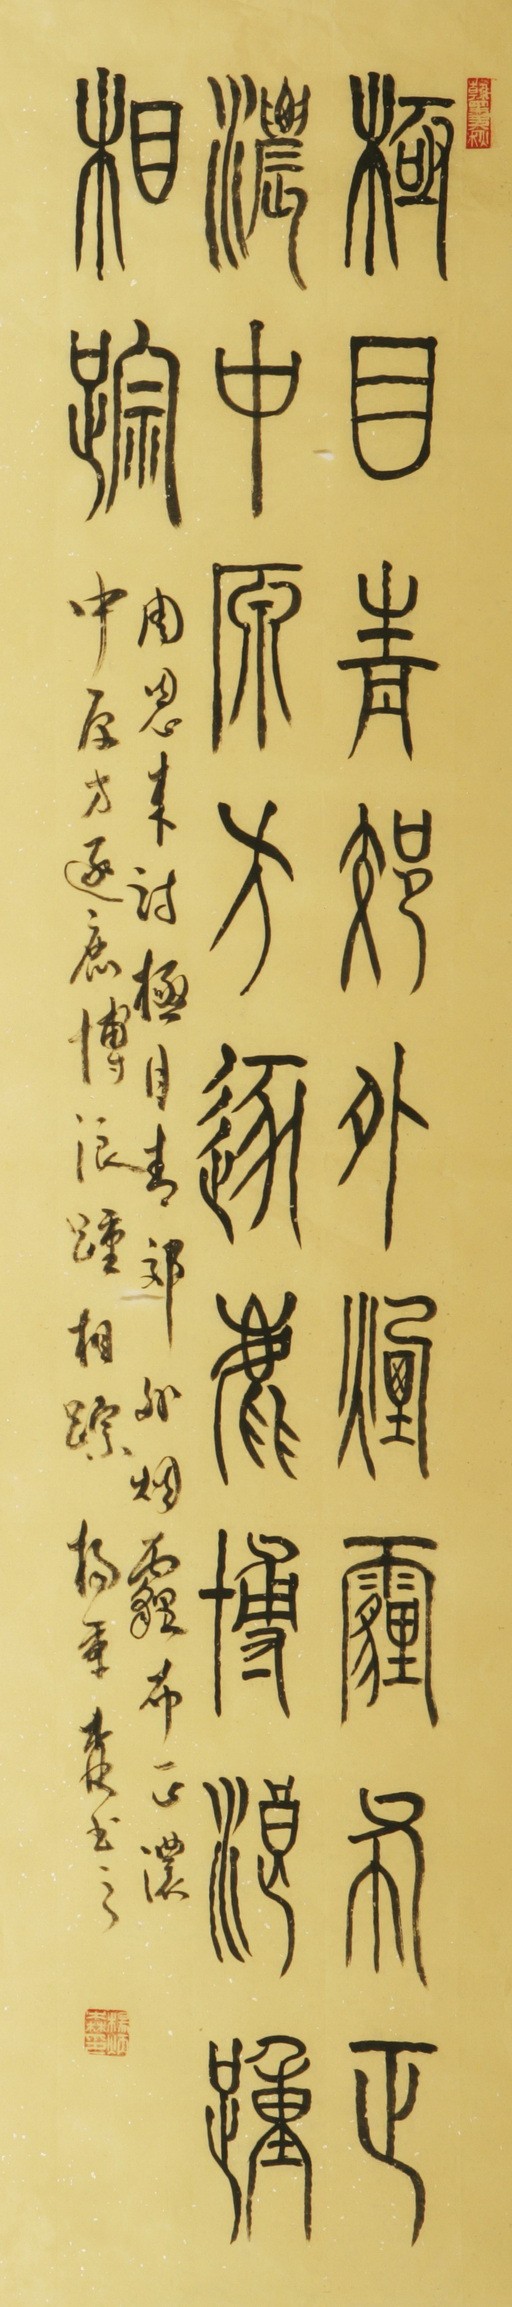 極目青郊外煙霾布正
濃中原方逐鹿博浪踵
相踪
周恩来詩極目青郊外烟霾布正濃
中原方逐鹿博浪踵相踪
書之